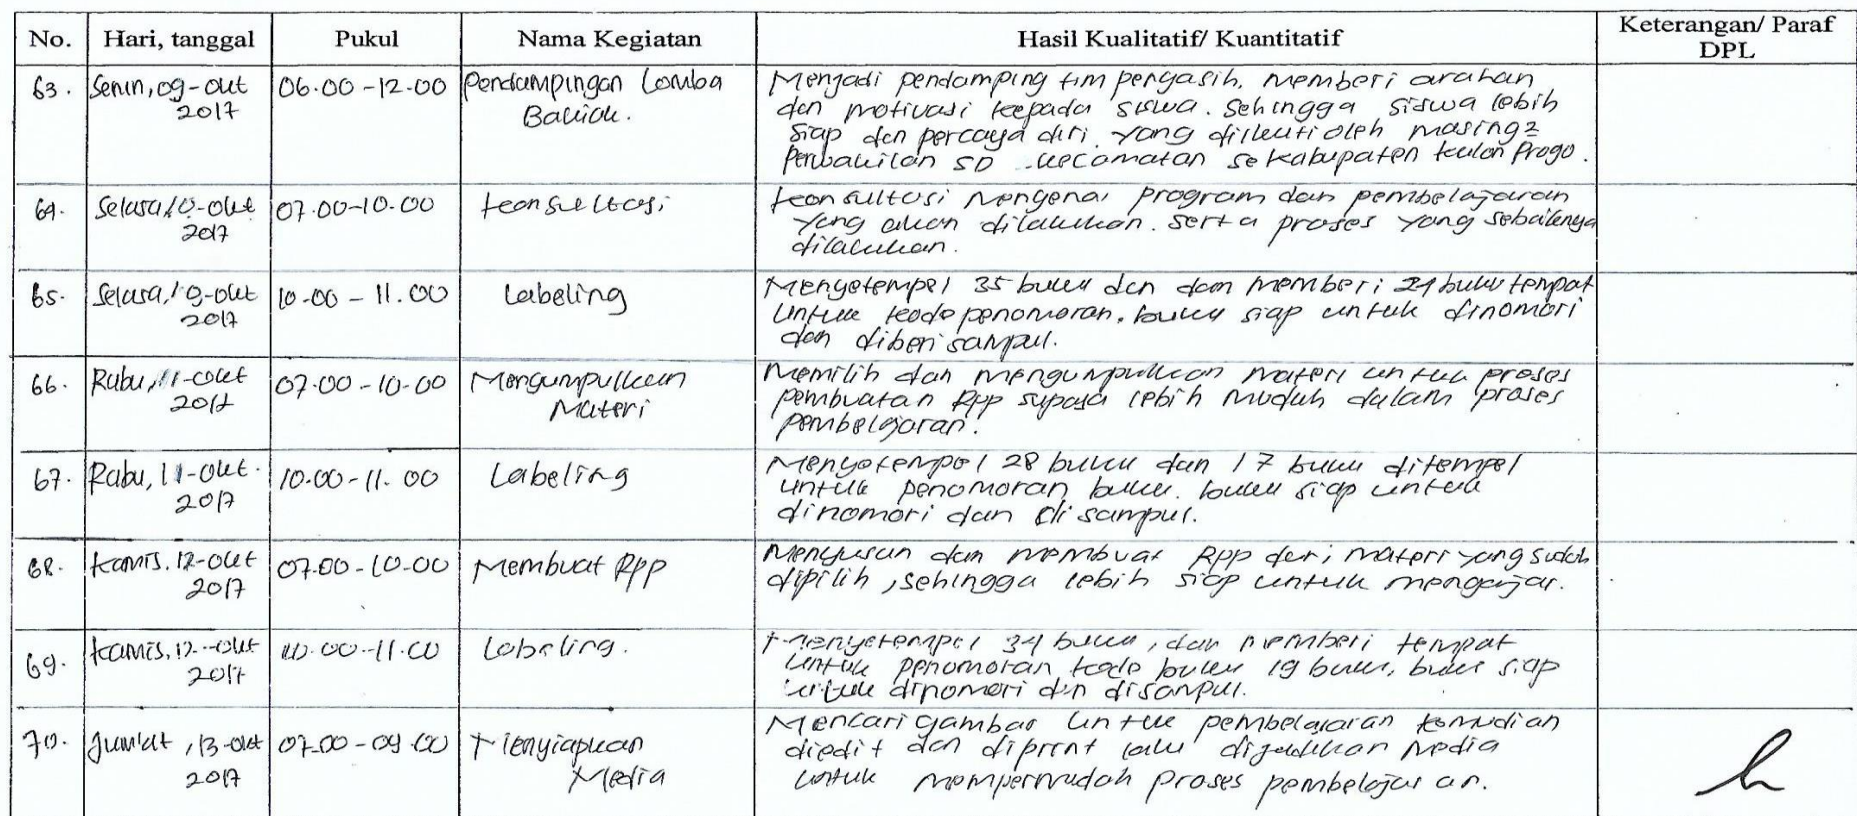 No. Hari, tanggal Pukul Nama Kegiatan Hasil Kualitatif/ Kuantitatif Keterangan/ Paraf DPL
63. Senin, 09-Okt 2017 06.00-12.00 Pendampingan Lomba
Menjadi pendamping tim pengasih. memberi arahan
dan motivasi kepada siswa. Sehingga siswa lebih
siap dan percaya diri. yang diikuti oleh masing2
Perwakilan SD kecamatan se kabupaten kulon Progo.
64. Selasa, 10-Okt 2017 07.00-10.00 konsultasi
konsultasi Mengenai Program dan pembelajaran
yang akan dilakukan. serta proses yang sebaiknya
dilakukan.
65. Selasa, 10-Okt 2017 10.00 - 11.00 Labeling
Menyetempel 35 buku dan dan memberi 24 buku tempat
untuk kode penomoran. buku siap untuk dinomori
dan diberi sampul.
66. Rabu, 11-Okt 2017 07.00-10.00 Mengumpulkan Materi
Memilih dan mengumpulkan materi untuk proses
pembuatan Rpp supaya lebih mudah dalam proses
pembelajaran.
67. Rabu, 11-Okt. 2017 10.00-11.00 Labeling
Menyetempel 28 buku dan 17 buku ditempel
untuk penomoran buku. buku siap untuk
dinomori dan di sampul.
68. kamis, 12-Okt 2017 07.00-10.00 Membuat Rpp
Menyusun dan membuat Rpp dari materi yang sudah
dipilih, sehingga lebih siap untuk mengajar.
69. kamis, 12-Okt 2017 10.00-11.00 Labeling.
Menyetempel 34 buku, dan memberi tempat
untuk penomoran kode buku 19 buku, buku siap
untuk dinomori dan disampul.
70. Jum'at, 13-Okt 2017 07.00-09.00 Menyiapkan Media
Mencari gambar untuk pembelajaran kemudian
diedit dan diprint lalu dijadikan Media
untuk mempermudah proses pembelajaran.